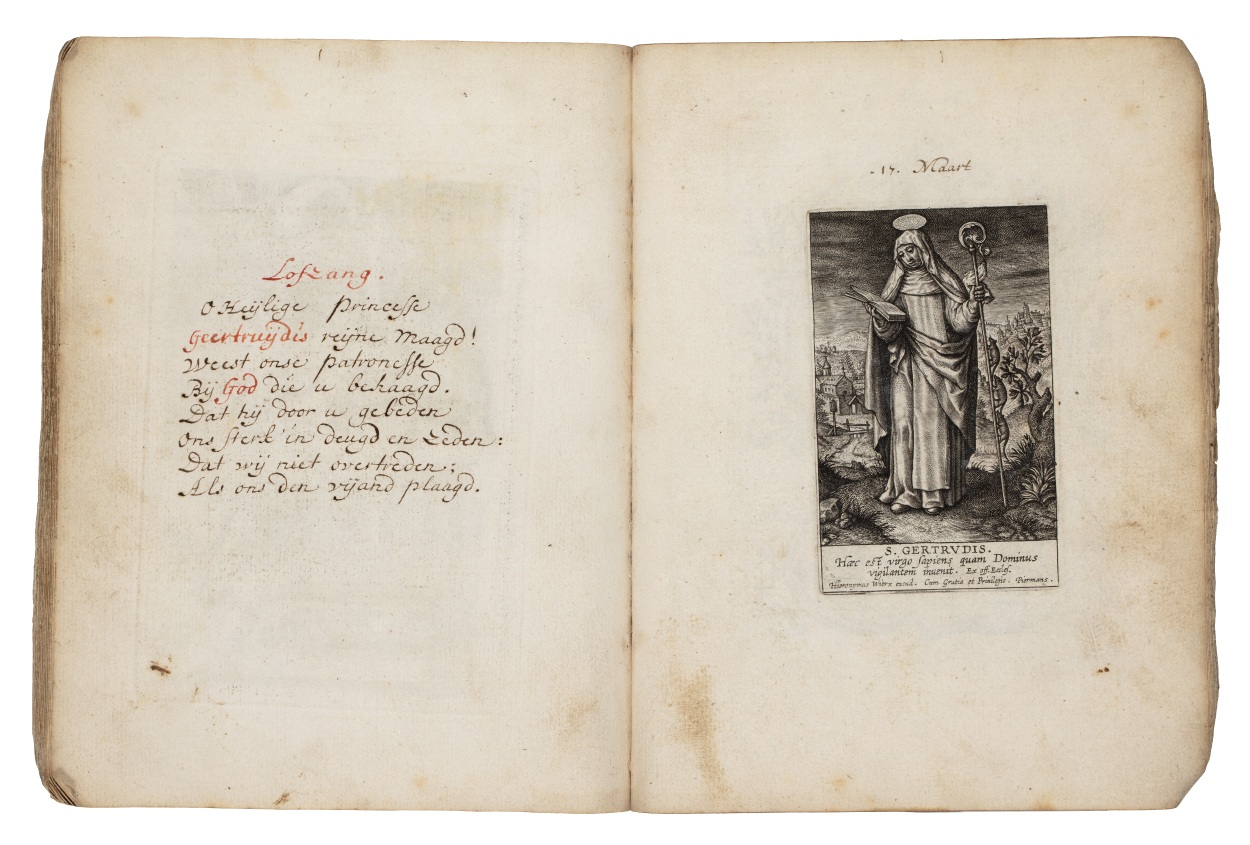 Lofzang.
O Heÿlige princesse
geertruÿdis reÿne maagd!
Weest onse patronesse
Bÿ God die u behaagd.
Dat hÿ door u gebeden
ons sterk in deugd en zeden:
Dat wÿ niet overtreden;
Als ons den vÿand plaagd.
17. Maart
S. GERTRVDIS.
Hæc est virgo sapiens quam Dominus
vigilantem invenit. Ex off. Eccles.
Hieronymus Wierx excud. Cum Gratia et Privilegio. Piermans.